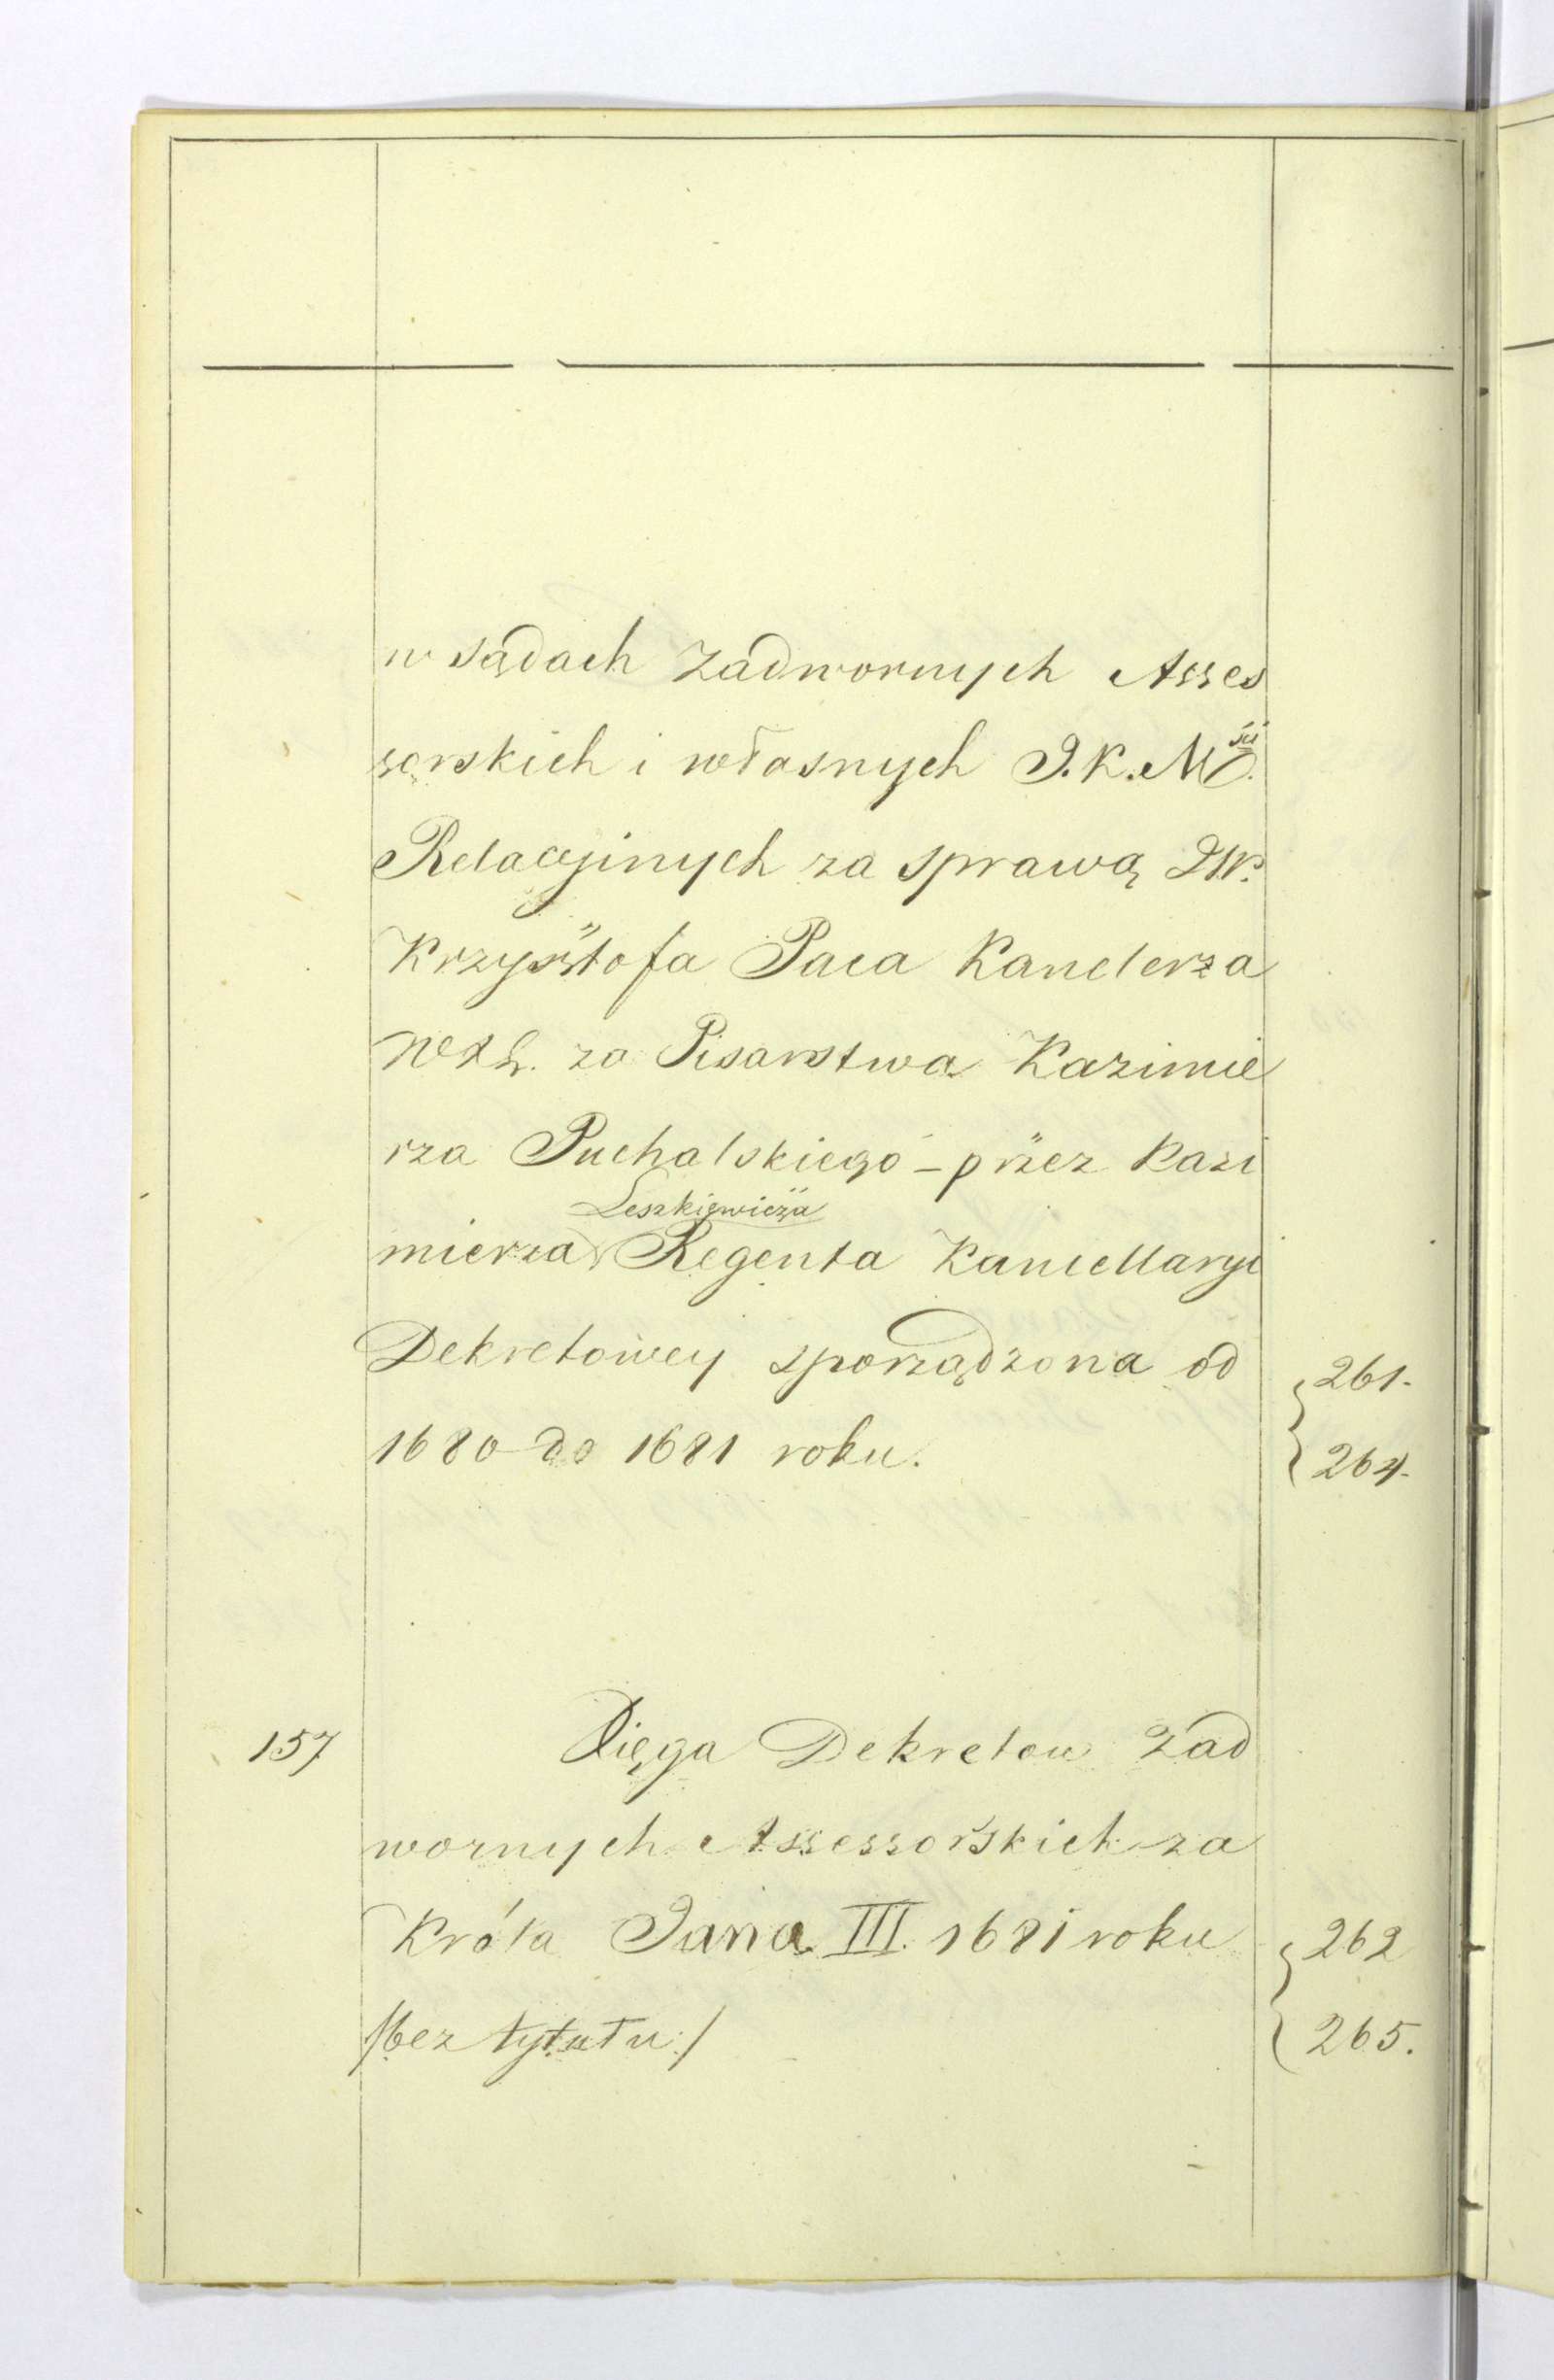 w sądach Zadwornych Asses
sorskich i własnych J. K. Mści.
Relacyjnych za sprawą JW.
Krzysztofa Paca Kanclerza
WXL. za Pisarstwa Kazimie
rza Puchalskiego – przez Kazi
Leszkiewicza
mierza Regenta Kancellaryi
Dekretowey sporządzona od 261.
1680 do 1681 roku. 264.
157 Xięga Dekretow Zad
wornych Assessorskich za
Króla Jana III. 1681 roku 262
/bez tytułu:/ 265.